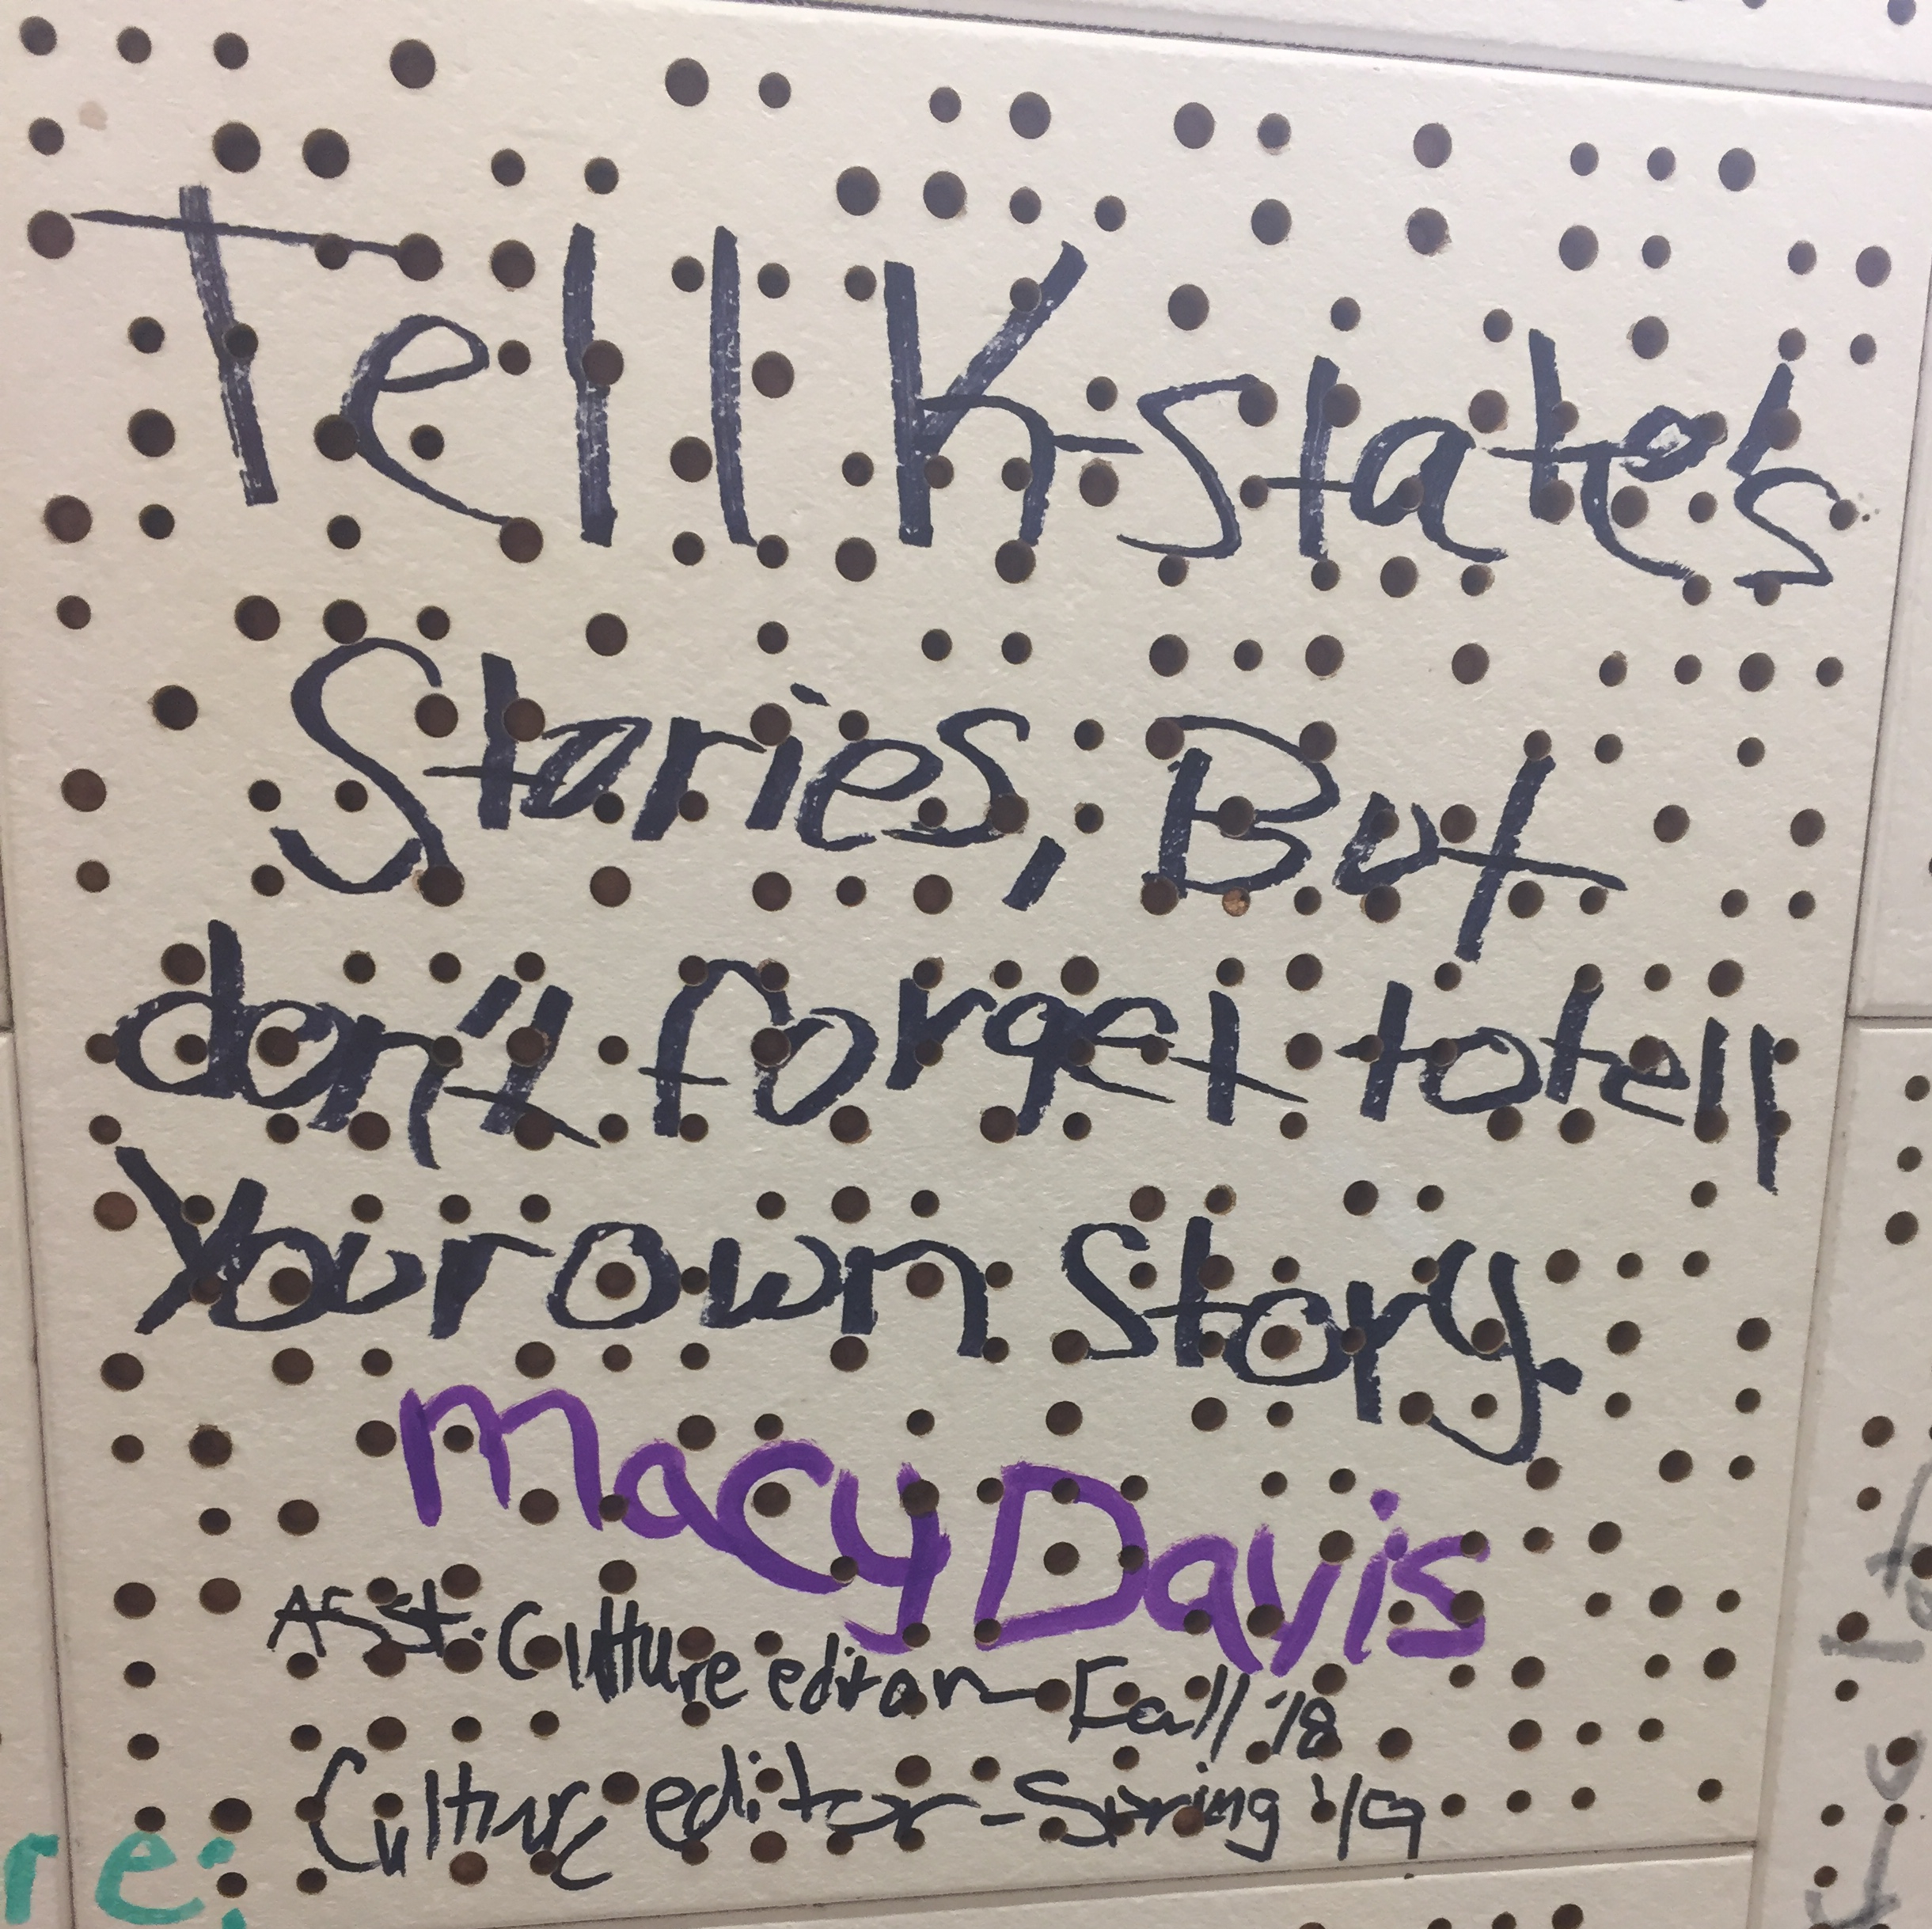 Tell K-state's
Stories, But
don't forget to tell
Your own Story.
Macy Davis
Asst. Culture editor - Fall '18
Culture editor - Spring '19
re: